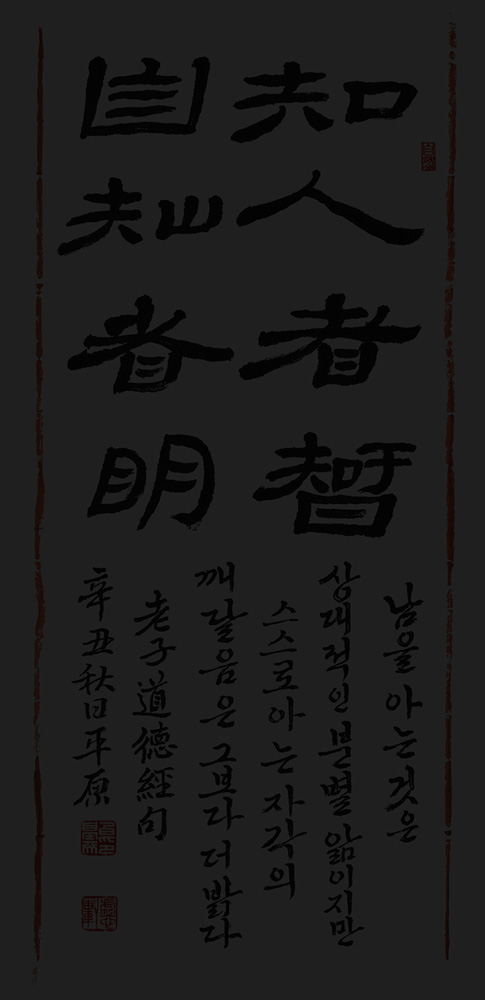 知人者智
自知者明
남을 아는 것은
상대적인 분별 앎이지만
스스로 아는 자각의
깨달음은 그보다 더 밝다
老子道德經句
辛丑秋日平原